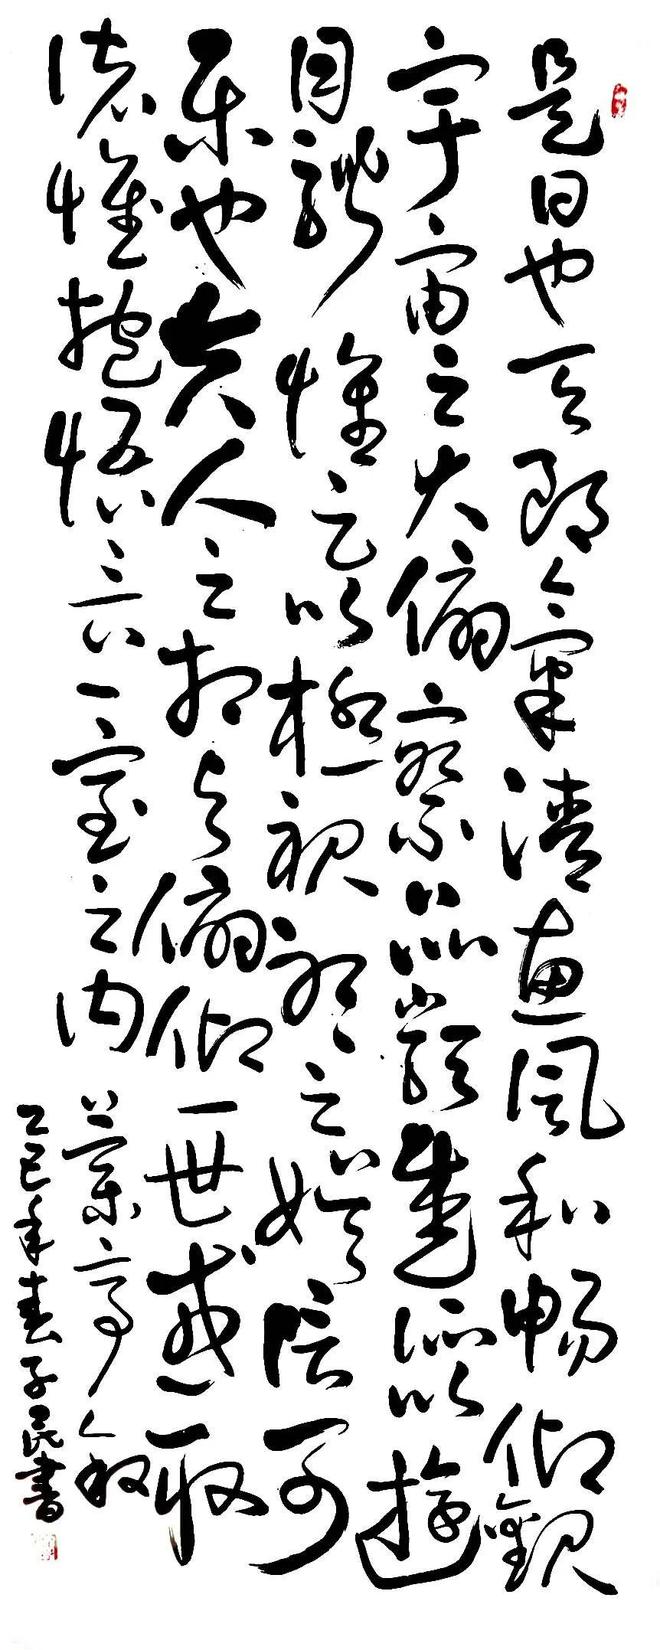 是日也天朗氣清惠風和暢仰觀
宇宙之大俯察品類盛所以遊
目騁懷足以極視聽之娛信可
樂也夫人之相與俯仰一世或取
諸懷抱悟言一室之內
蘭亭敘
乙巳年春子民書